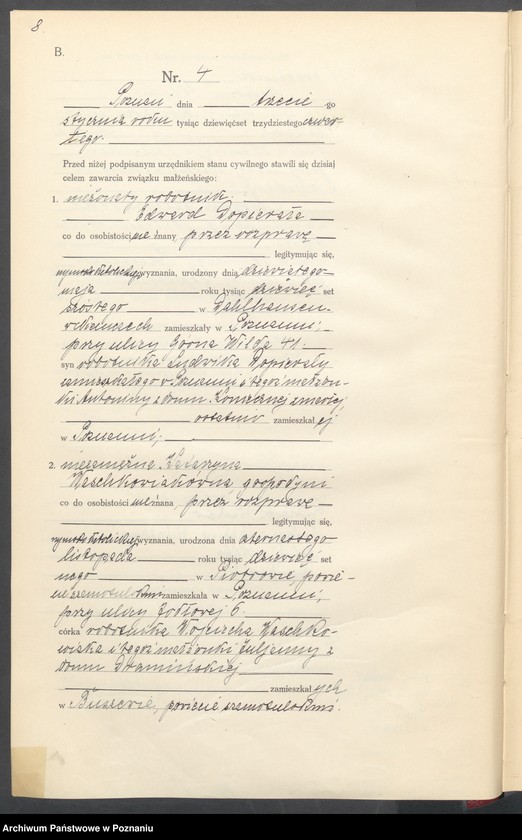 8
B.
Nr. 4
Poznań dnia trzecie go
stycznia roku tysiąc dziewięćset trzydziestego czwar-
tego.
Przed niżej podpisanym urzędnikiem stanu cywilnego stawili się dzisiaj
celem zawarcia związku małżeńskiego:
1. nieżonaty robotnik
Edward Dopierała
co do osobistości nieznany przez rozprawę
legitymując się,
wyznania, urodzony dnia dziewiątego
maja roku tysiąc dziewięć set
szóstego w Dahlhausen
zamieszkały w Poznaniu,
przy ulicy Górna Wilda 41.
syn robotnika Ludwika Dopierały
zamieszkałego w Poznaniu i tegoż małżon-
ki Antoniny z domu zmarłej
ostatnio zamieszkałej
w Poznaniu,
2. niezamężna Katarzyna
Waschkowiakówna gochodyni
co do osobistości nieznana przez rozprawę
legitymując się,
wyznania, urodzona dnia
listopada roku tysiąc dziewięć set
w Piotrowie, powie-
cie zamieszkała w Poznaniu,
przy ulicy 6.
córka robotnika Wojciecha Waschko-
wiaka i tegoż małżonki Juljanny z
domu Dramińskiej
zamieszkałych
w Buszewie, powiecie szamotulskim.
Archiwum Państwowe w Poznaniu